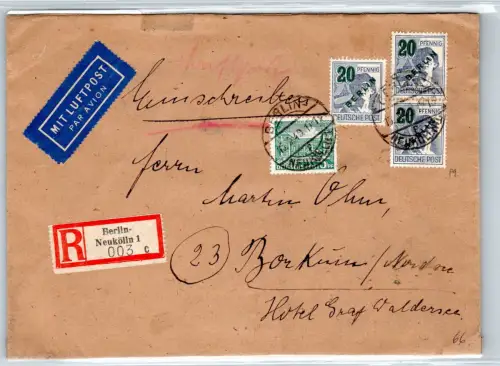 MIT LUFTPOST
PAR AVION
Einschreiben
20 PFENNIG
BERLIN
DEUTSCHE POST
20 PFENNIG
BERLIN
20
DEUTSCHE POST
BERLIN
NEUKÖLLN
Herrn
Martin Ohm,
R
Berlin-
Neukölln 1
003 c
(23) Borkum/
Hotel Graf Waldersee
66